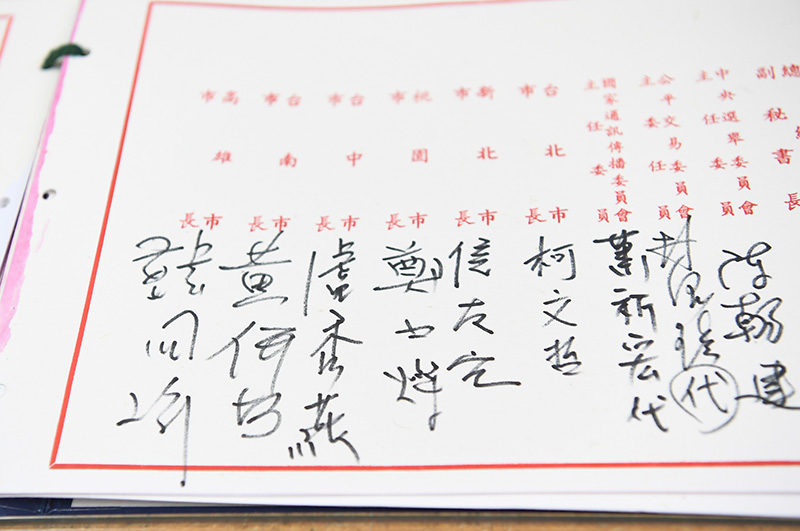 副秘書長
中央選舉委員會
主任委員
陳朝建
公平交易委員會
主任委員
彭紹瑾代
國家通訊傳播委員會
主任委員
蕭祈宏代
台北市
市長
柯文哲
新北市
市長
侯友宜
桃園市
市長
鄭文燦
台中市
市長
盧秀燕
台南市
市長
黃偉哲
高雄市
市長
韓國瑜